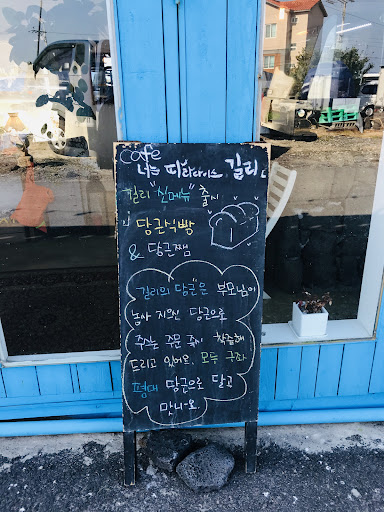 cafe
너는 파라다이스, 길리
길리 "신메뉴" 출시
당근식빵
& 당근쨈
"길리의 당근"은 부모님이
농사 지으신 당근으로
주스는 주문 즉시 착즙해
드리고 있어요. 모두 구좌
평대 당근으로 달고
만나~요.